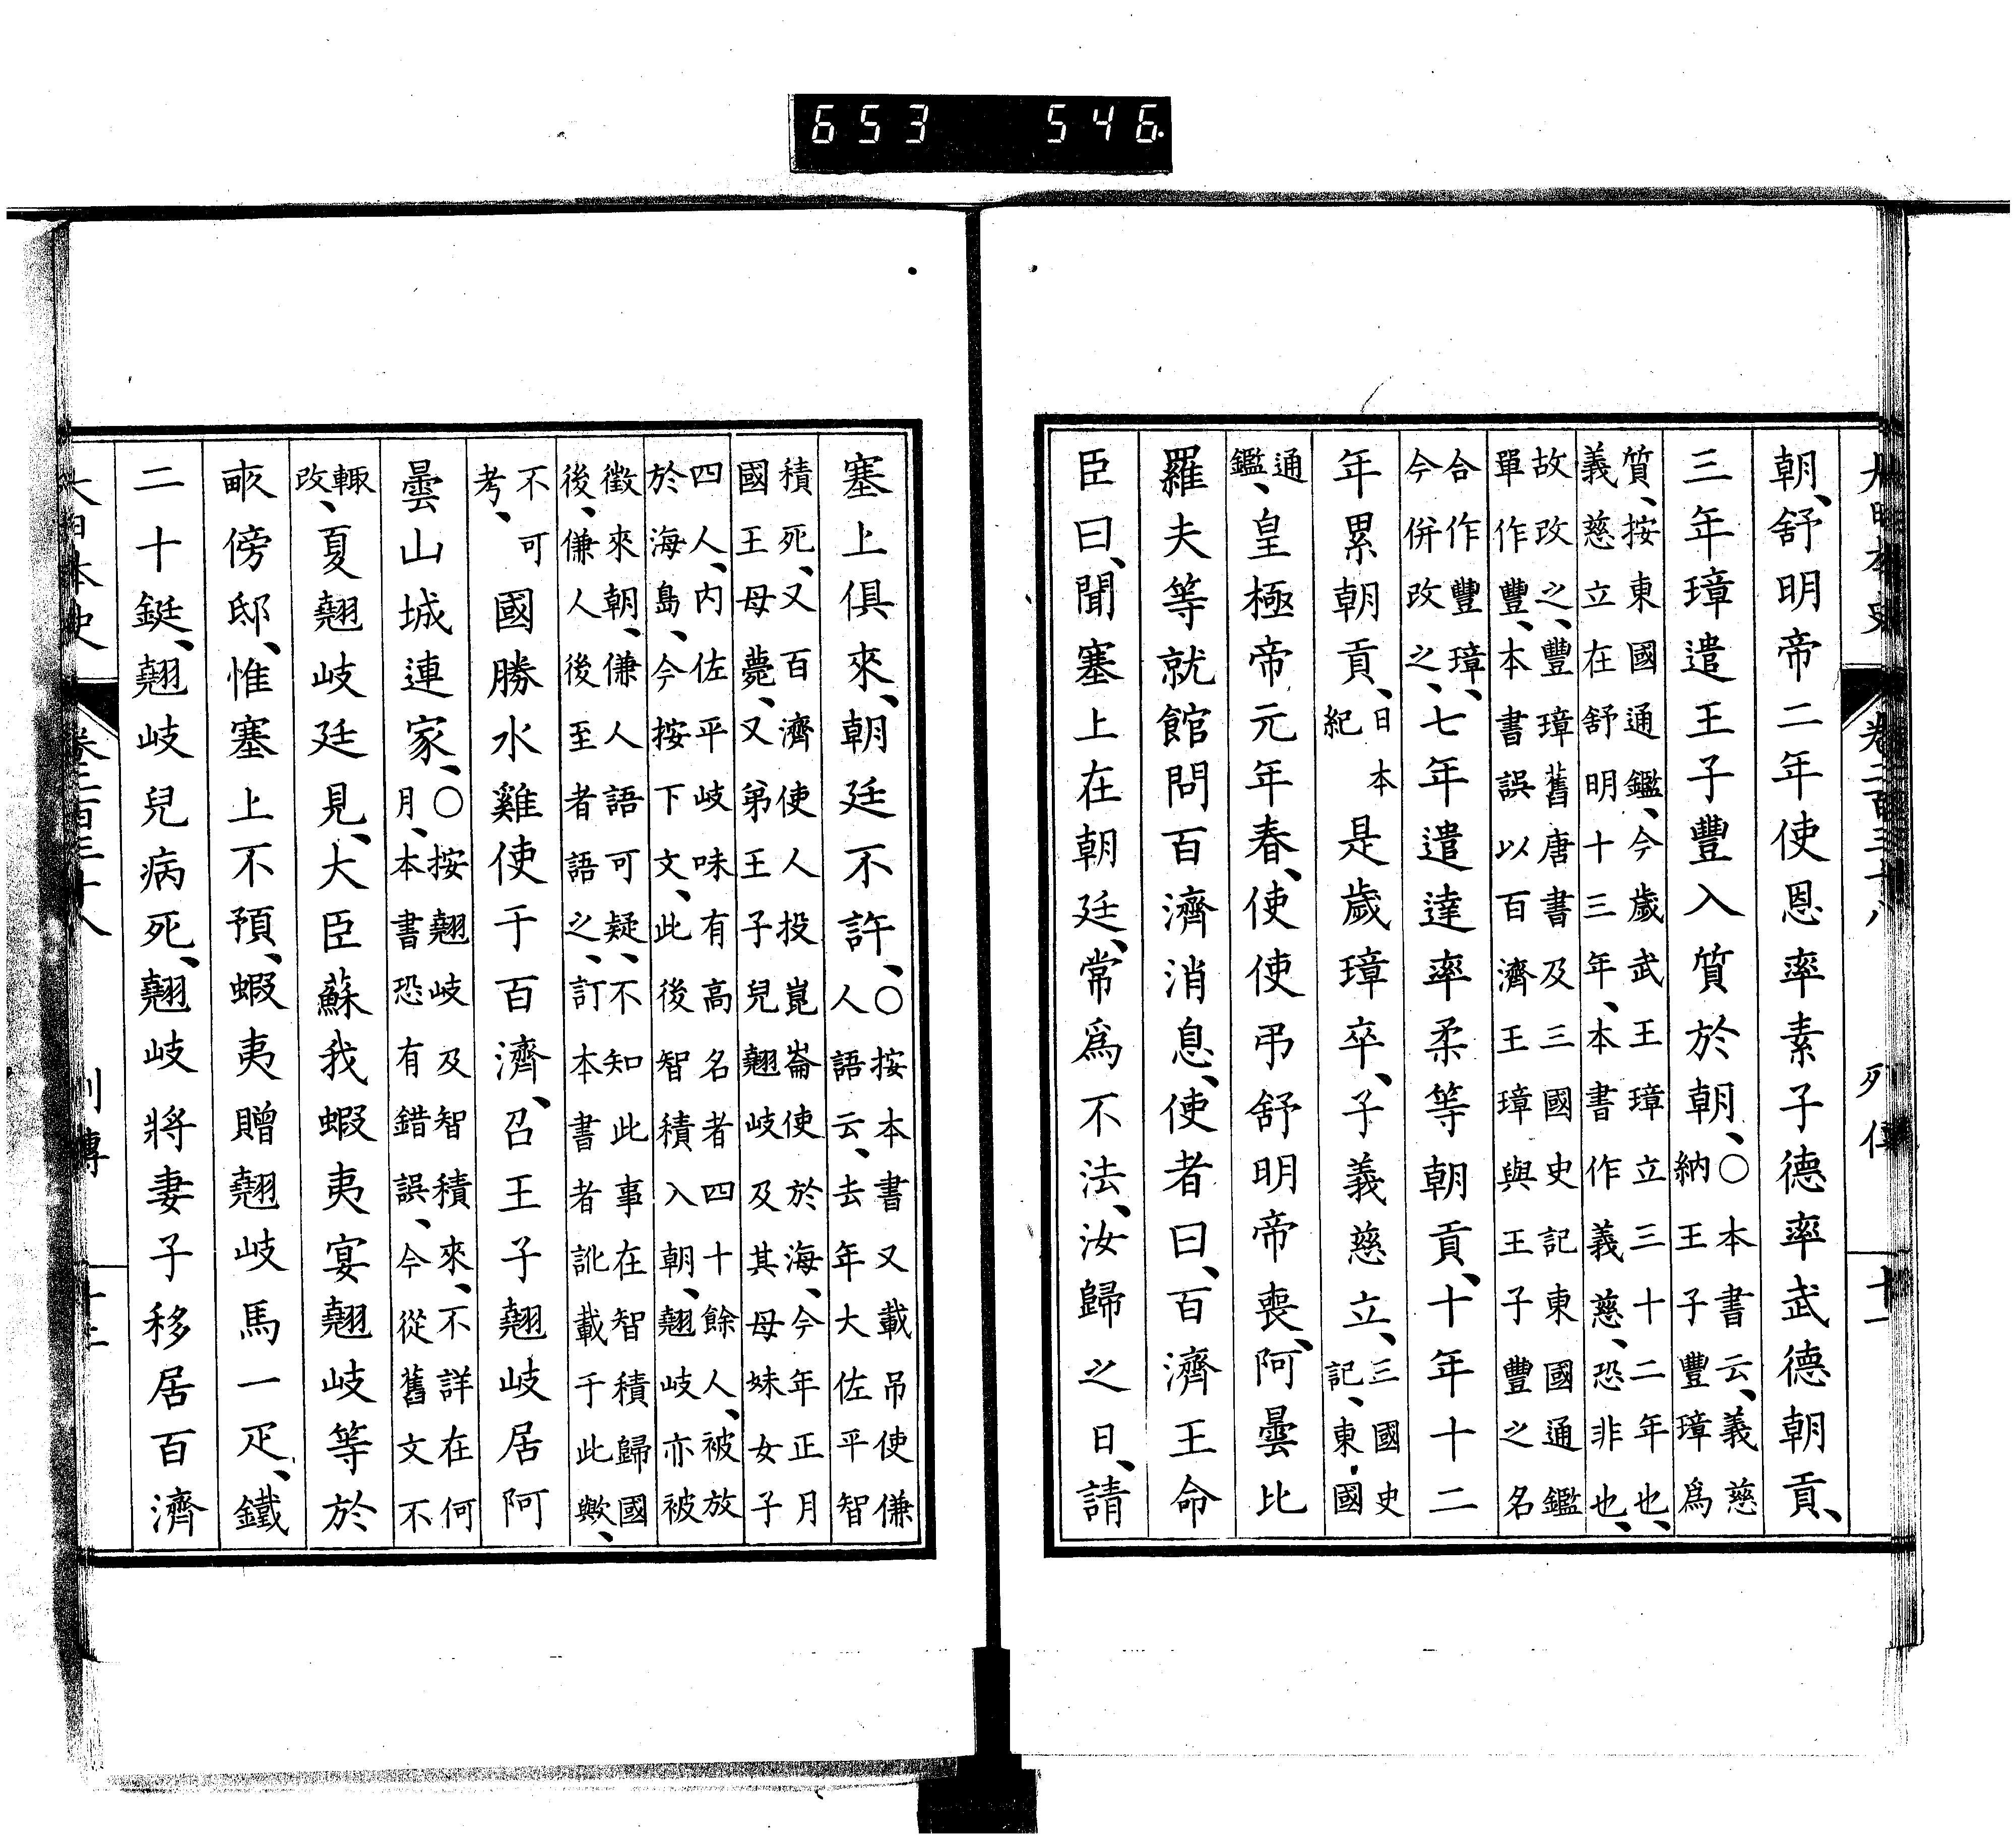 653 546
大日本史 卷二百三十八 列傳 十一
朝、舒明帝二年使恩率素子德率武德朝貢、
三年璋遣王子豐入質於朝、〇本書云、義慈納王子豐璋爲
質、按東國通鑑、今歲武王璋立三十二年也、義慈立在舒明十三年、本書作義慈、恐非也、
故改之、豐璋舊唐書及三國史記東國通鑑單作豐、本書誤以百濟王璋與王子豐之名
合作豐璋、今併改之、七年遣達率柔等朝貢、十年十二
年累朝貢、日本紀是歲璋卒、子義慈立、三國史記、東國
通鑑、皇極帝元年春、使使弔舒明帝喪、阿曇比
羅夫等就館問百濟消息、使者曰、百濟王命
臣曰、聞塞上在朝廷、常爲不法、汝歸之日、請
塞上俱來、朝廷不許、〇按本書又載吊使傔人語云、去年大佐平智
積死、又百濟使人投崑崙使於海、今年正月國王母薨、又弟王子兒翹岐及其母妹女子
四人、內佐平岐味有高名者四十餘人、被放於海島、今按下文、此後智積入朝、翹岐亦被
徵來朝、傔人語可疑、不知此事在智積歸國後、傔人後至者語之、訂本書者訛載于此歟、
不可考、國勝水雞使于百濟、召王子翹岐居阿
曇山城連家、〇按翹岐及智積來、不詳在何月、本書恐有錯誤、今從舊文不
輙改、夏翹岐廷見、大臣蘇我蝦夷宴翹岐等於
畝傍邸、惟塞上不預、蝦夷贈翹岐馬一疋、鐵
二十鋌、翹岐兒病死、翹岐將妻子移居百濟
大日本史 卷二百三十八 列傳 十二